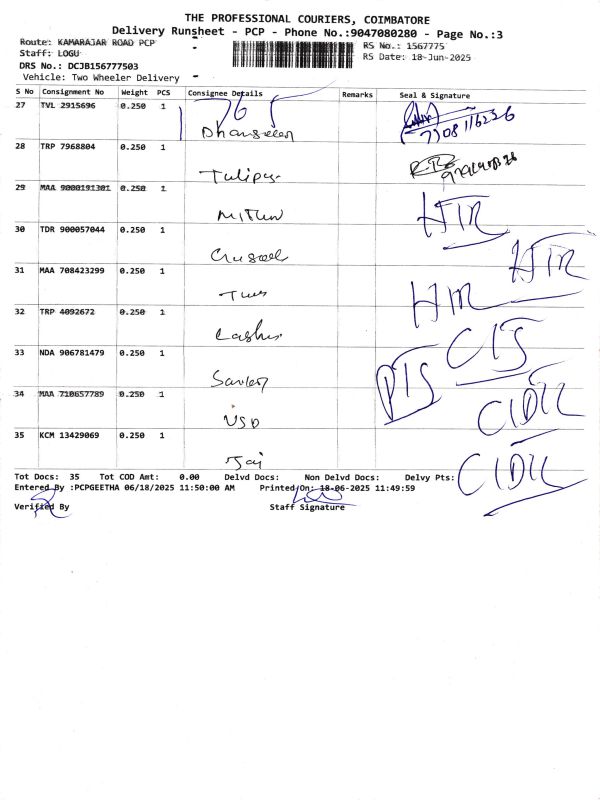 THE PROFESSIONAL COURIERS, COIMBATORE
Delivery Runsheet - PCP - Phone No.:9047080280 - Page No.:3
Route: KAMARAJAR ROAD PCP RS No.: 1567775
Staff: LOGU RS Date: 18-Jun-2025
DRS No.: DCJB156777503
Vehicle: Two Wheeler Delivery
S No Consignment No Weight PCS Consignee Details Remarks Seal & Signature
27 TVL 2915696 0.250 1
28 TRP 7968804 0.250 1
Tulips
29 MAA 9000191301 0.250 1
Mithun HIR
30 TDR 900057044 0.250 1
HIR
31 MAA 708423299 0.250 1
HIR
32 TRP 4092672 0.250 1
CIS
33 NDA 906781479 0.250 1
PTS
34 MAA 710657789 0.250 1
USD CIDIC
35 KCM 13429069 0.250 1
Jai CIDIC
Tot Docs: 35 Tot COD Amt: 0.00 Delvd Docs: Non Delvd Docs: Delvy Pts:
Entered By :PCPGEETHA 06/18/2025 11:50:00 AM Printed On: 18-06-2025 11:49:59
Verified By Staff Signature